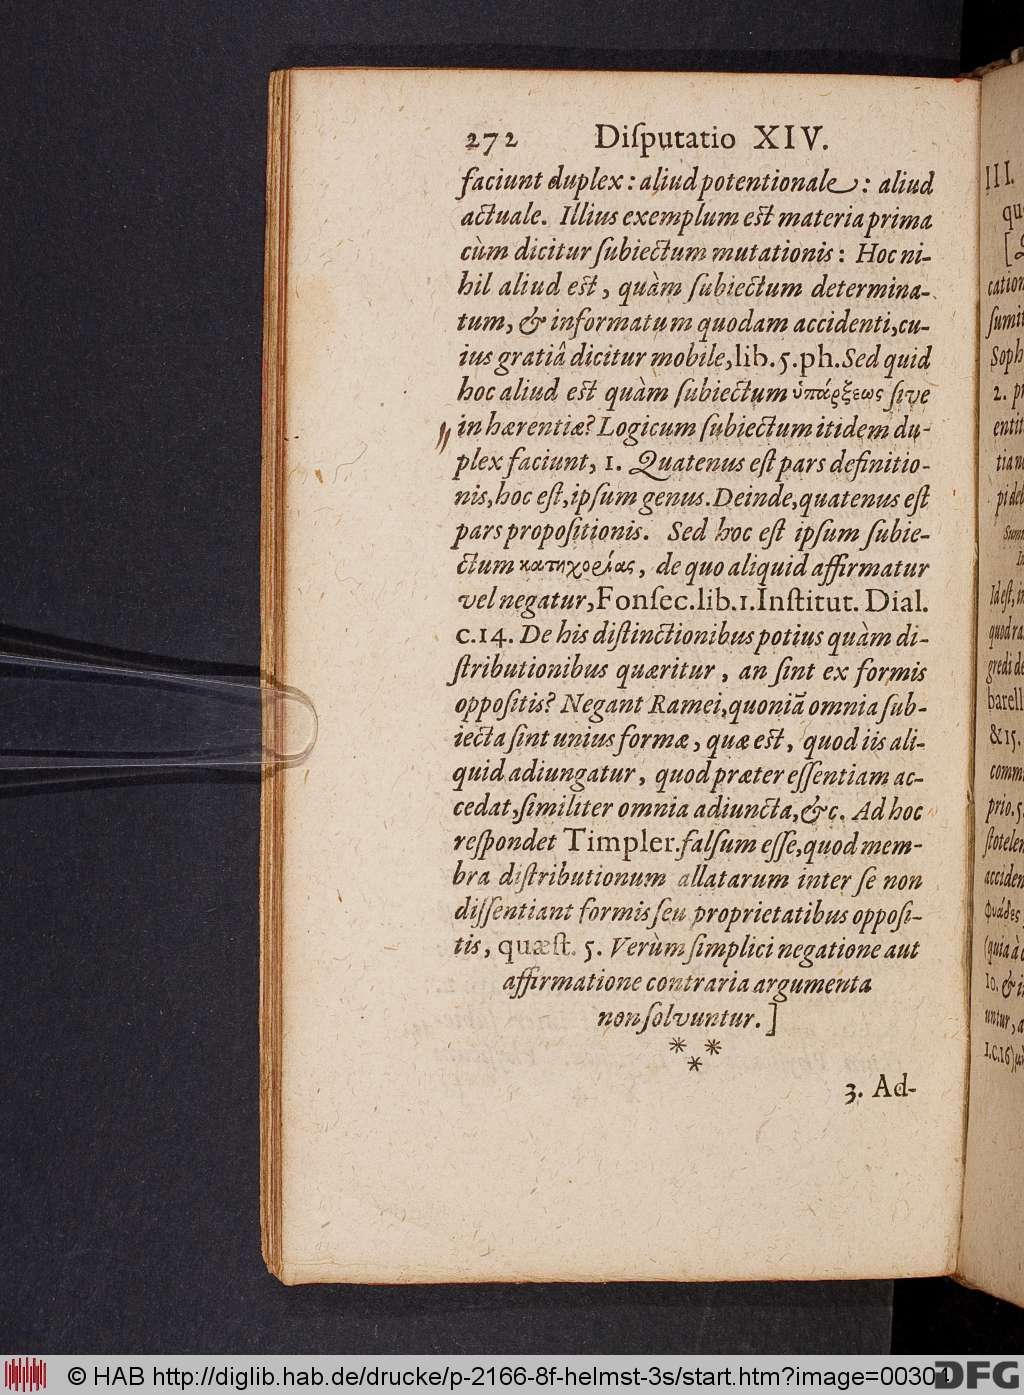 272 Diſputatio XIV.
faciunt duplex: aliud potentionale: aliud
actuale. Illius exemplum est materia prima
cùm dicitur ſubiectum mutationis: Hoc ni-
hil aliud est, quàm ſubiectum determina-
tum, & informatum quodam accidenti, cu-
ius gratiâ dicitur mobile, lib. 5. ph. Sed quid
hoc aliud est quàm ſubiectum ὑπάρξεως ſive
in hærentiæ? Logicum ſubiectum itidem du-
plex faciunt, 1. Quatenus eſt pars definitio-
nis, hoc eſt, ipſum genus. Deinde, quatenus eſt
pars propoſitionis. Sed hoc eſt ipſum ſubie-
ctum κατηχορείας, de quo aliquid affirmatur
vel negatur, Fonſec. lib. 1. Inſtitut. Dial.
c. 14. De his diſtinctionibus potius quàm di-
ſtributionibus quæritur, an ſint ex formis
oppoſitis? Negant Ramei, quoniã omnia ſub-
iecta ſint unius formæ, quæ est, quod iis ali-
quid adiungatur, quod præter eſſentiam ac-
cedat, ſimiliter omnia adiuncta, &c. Ad hoc
reſpondet Timpler. falſum eſſe, quod mem-
bra diſtributionum allatarum inter ſe non
diſſentiant formis ſeu proprietatibus oppoſi-
tis, quæſt. 5. Verùm ſimplici negatione aut
affirmatione contraria argumenta
non ſolvuntur.]
* * *
3. Ad-
III.
qu
cation
ſumit
Soph
2. p
entit
tian
pi de
Id eſt, in
quod ra
gredi de
barell
& 15.
comm
prio. 5
ſtotelem
acciden
φυάδες
(quia à
10. & i
untur, a
1. c. 16)
© HAB http://diglib.hab.de/drucke/p-2166-8f-helmst-3s/start.htm?image=00304
DFG